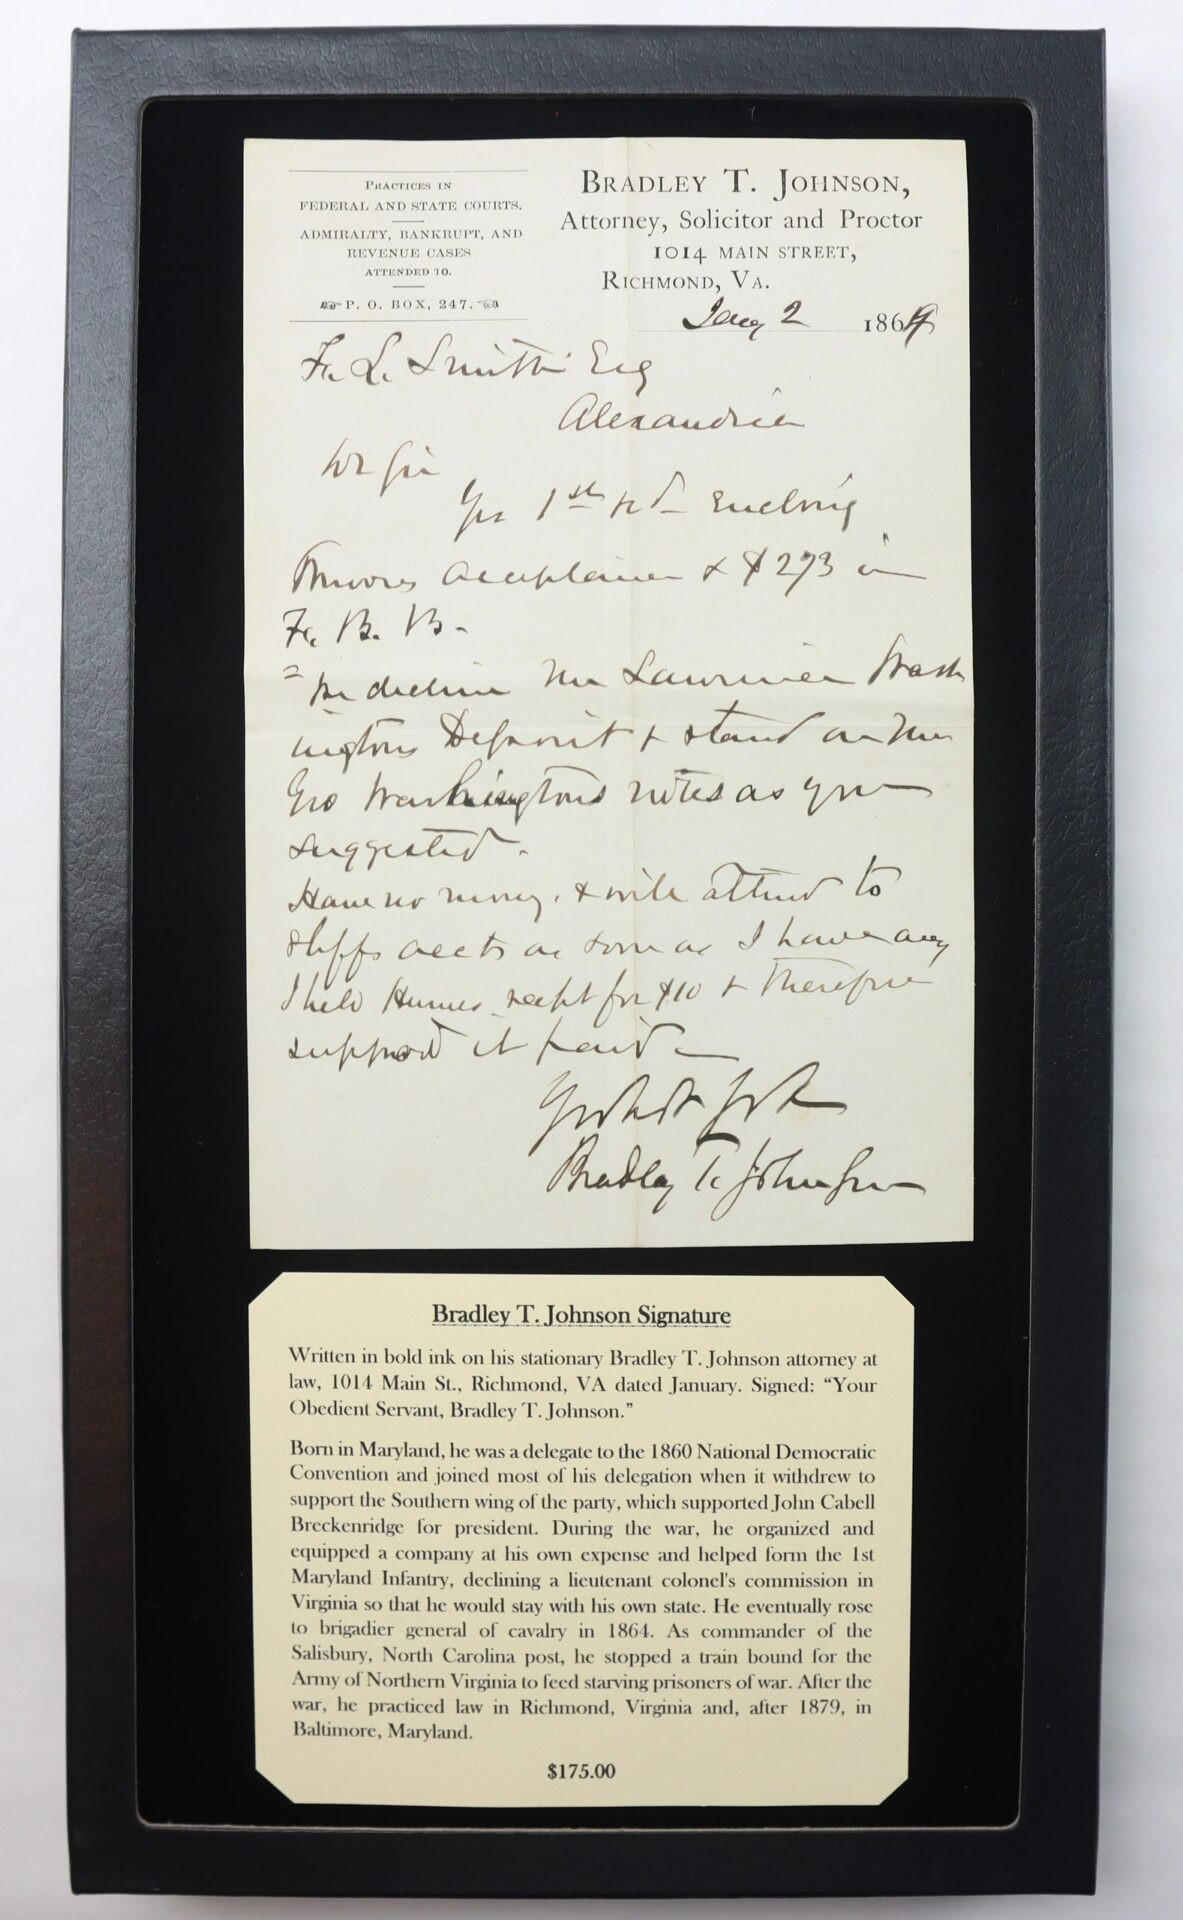 PRACTICES IN
FEDERAL AND STATE COURTS.
ADMIRALTY, BANKRUPT, AND
REVENUE CASES
ATTENDED TO.
☞ P. O. BOX, 247. ☜
BRADLEY T. JOHNSON,
Attorney, Solicitor and Proctor
1014 MAIN STREET,
RICHMOND, VA.
Jany 2 1869
F. L. Smith Esq
Alexandria
Dr Sir
Yrs 1st recd – enclosing
acceptance & $273 in
F. B. B.
We decline Mr Lawrence Wash
ingtons Deposit & stand on Mr
Geo Washingtons notes as you
suggested.
Have no money. & will attend to
accts as soon as I have any
I held receipt for $10 & therefore
supposed it paid –
Yr obt svt
Bradley T. Johnson
Bradley T. Johnson Signature
Written in bold ink on his stationary Bradley T. Johnson attorney at
law, 1014 Main St., Richmond, VA dated January. Signed: “Your
Obedient Servant, Bradley T. Johnson.”
Born in Maryland, he was a delegate to the 1860 National Democratic
Convention and joined most of his delegation when it withdrew to
support the Southern wing of the party, which supported John Cabell
Breckenridge for president. During the war, he organized and
equipped a company at his own expense and helped form the 1st
Maryland Infantry, declining a lieutenant colonel's commission in
Virginia so that he would stay with his own state. He eventually rose
to brigadier general of cavalry in 1864. As commander of the
Salisbury, North Carolina post, he stopped a train bound for the
Army of Northern Virginia to feed starving prisoners of war. After the
war, he practiced law in Richmond, Virginia and, after 1879, in
Baltimore, Maryland.
$175.00